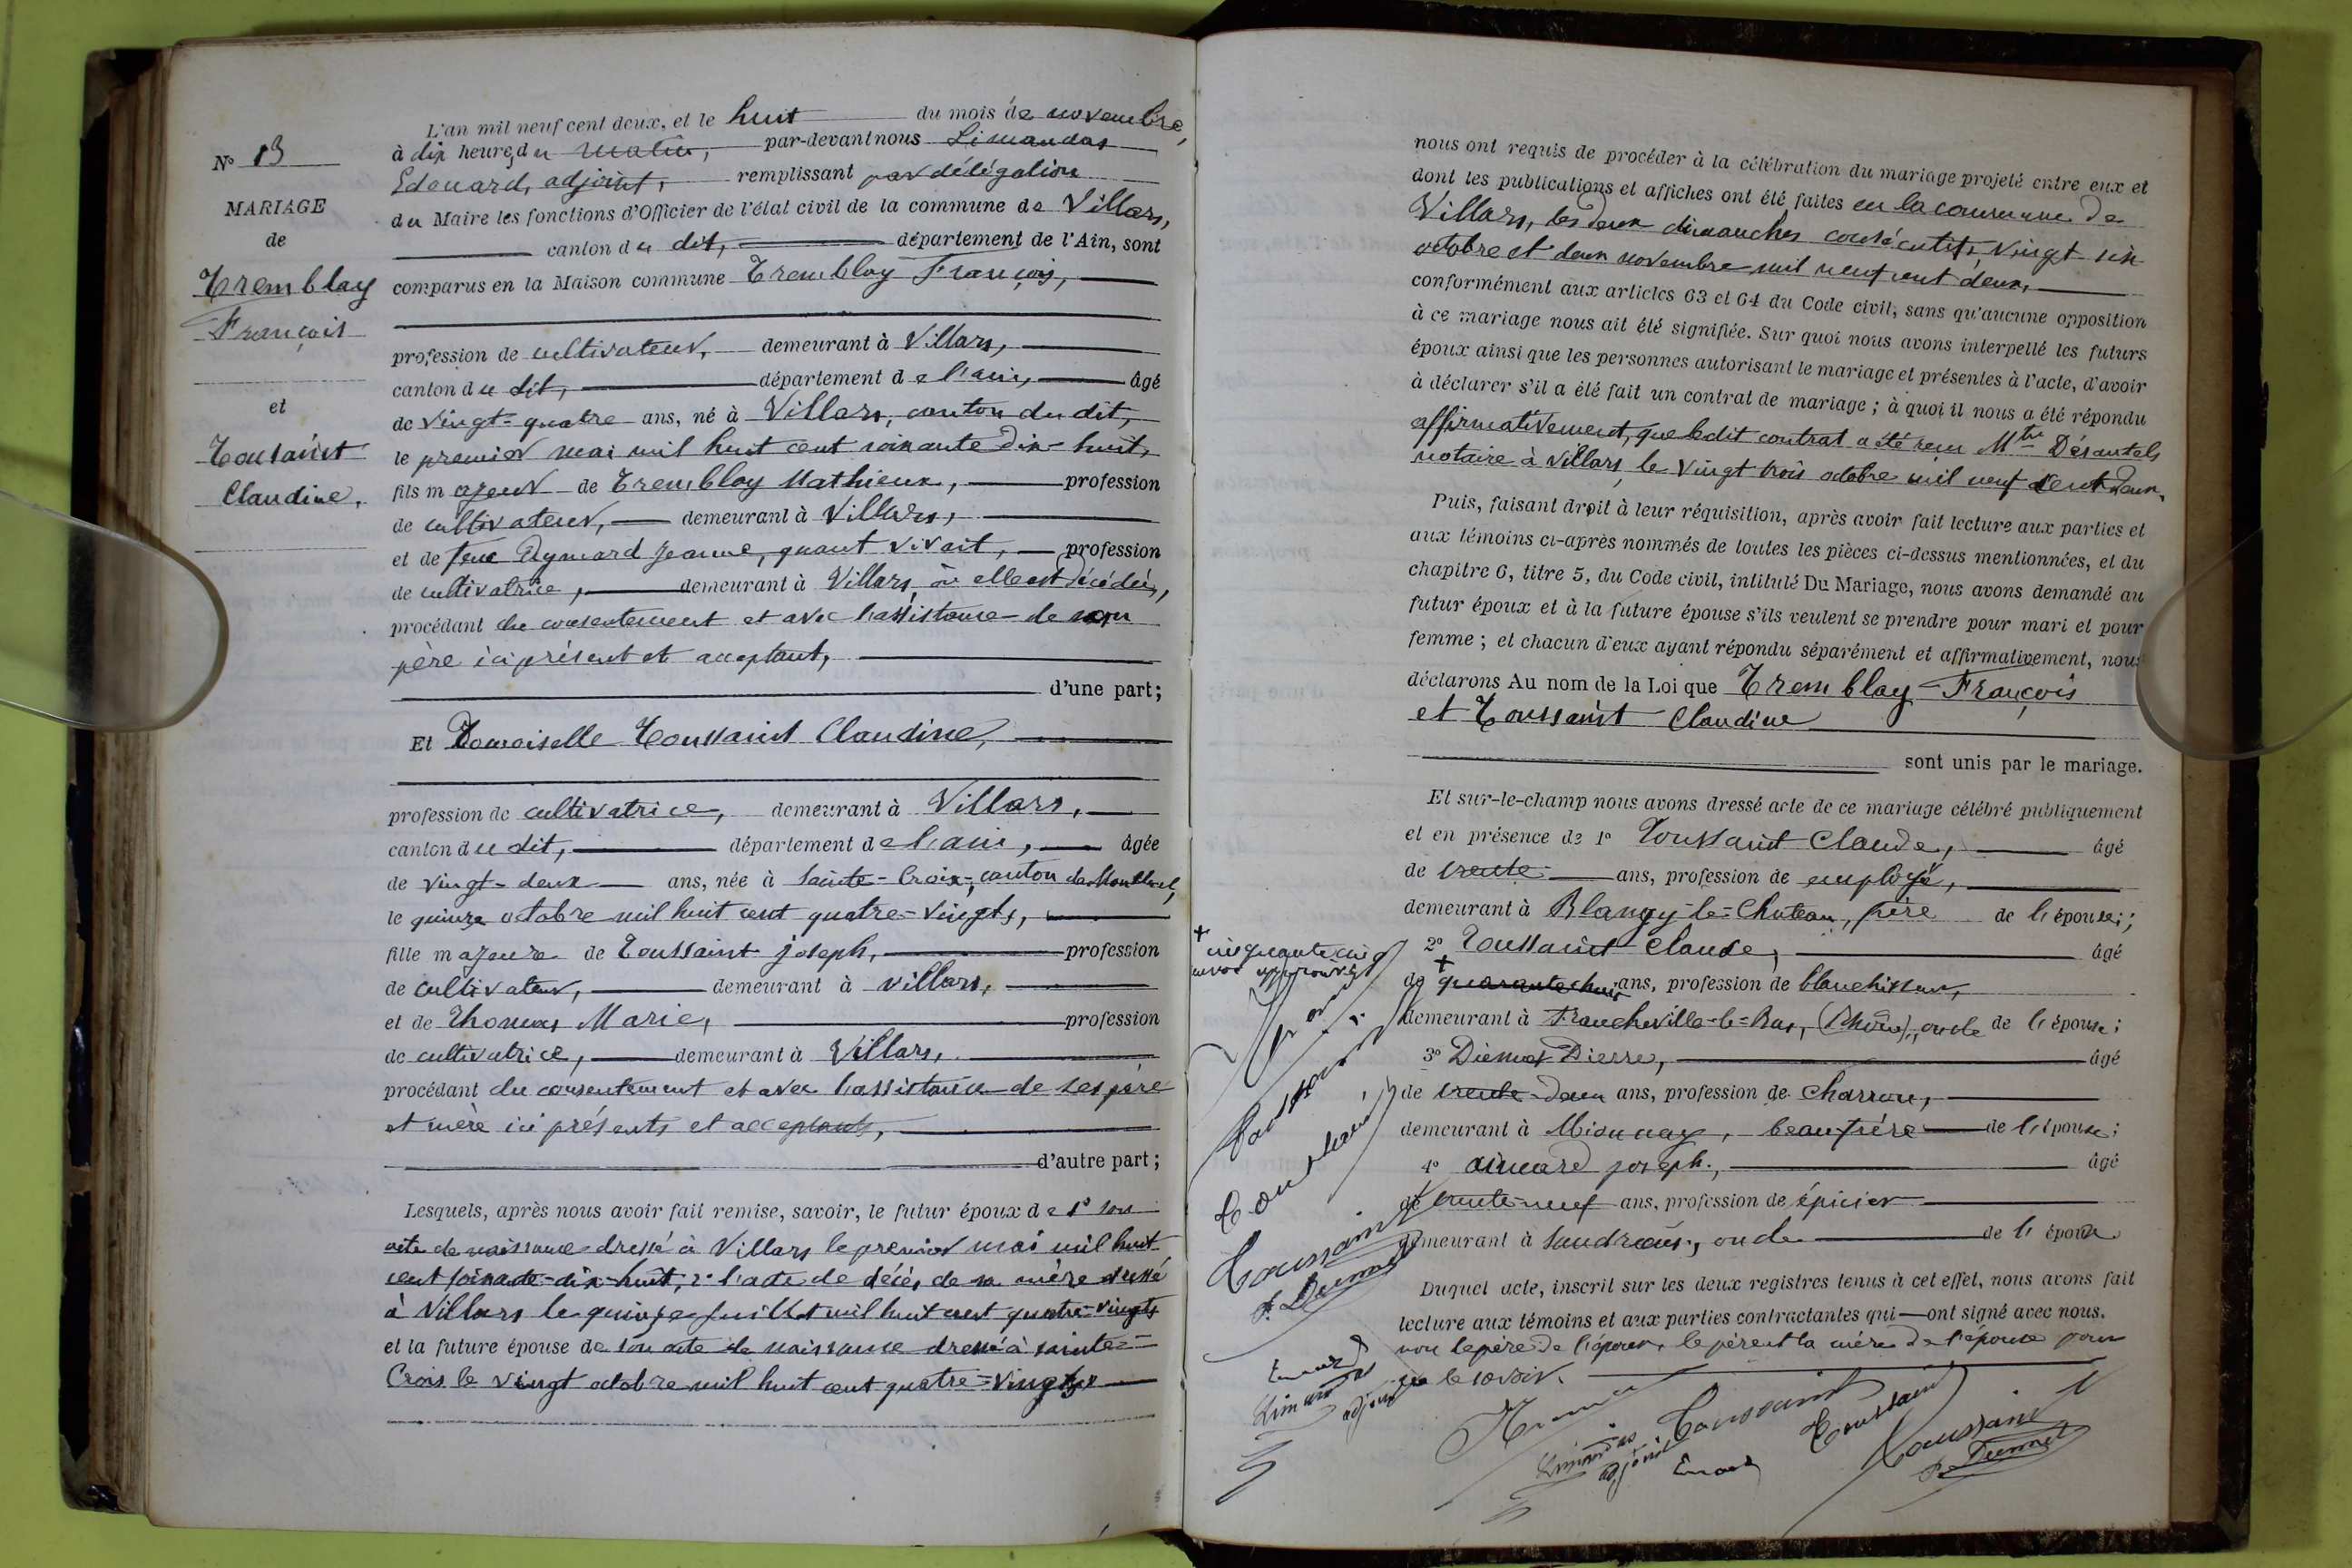 N° 13
MARIAGE
de
Tremblay
François
et
Toussaint
Claudine.
L'an mil neuf cent deux, et le huit du mois de novembre,
à dix heures du matin, par-devant nous Limandas
Edouard, adjoint, remplissant par délégation
du Maire les fonctions d'Officier de l'état civil de la commune de Villars,
canton du dit, département de l'Ain, sont
comparus en la Maison commune Tremblay François,
profession de cultivateur, demeurant à Villars,
canton du dit, département de l'ain, âgé
de vingt-quatre ans, né à Villars, canton du dit,
le premier mai mil huit cent soixante dix-huit,
fils majeur de Tremblay Mathieu, profession
de cultivateur, demeurant à Villars,
et de feue Aymard Jeanne, quant vivait, profession
de cultivatrice, demeurant à Villars, où elle est décédée,
procédant du consentement et avec l'assistance de son
père ici présent et acceptant,
d'une part;
Et Demoiselle Toussaint Claudine,
profession de cultivatrice, demeurant à Villars,
canton du dit, département de l'ain, âgée
de vingt-deux ans, née à Sainte-Croix, canton de Montluel,
le quinze octobre mil huit cent quatre-vingts,
fille majeure de Toussaint joseph, profession
de cultivateur, demeurant à villars,
et de Thomas Marie, profession
de cultivatrice, demeurant à Villars,
procédant du consentement et avec l'assistance de ses père
et mère ici présents et acceptants,
d'autre part;
Lesquels, après nous avoir fait remise, savoir, le futur époux de 1° son
acte de naissance dressé à Villars le premier mai mil huit
cent soixante-dix-huit, 2° l'acte de décès de sa mère dressé
à Villars le quinze juillet mil huit cent quatre-vingts
et la future épouse de son acte de naissance dressé à sainte-
Croix le vingt octobre mil huit cent quatre-vingts
nous ont requis de procéder à la célébration du mariage projeté entre eux et
dont les publications et affiches ont été faites en la commune de
Villars, les deux dimanches consécutifs, vingt six
octobre et deux novembre mil neuf cent deux,
conformément aux articles 63 et 64 du Code civil, sans qu'aucune opposition
à ce mariage nous ait été signifiée. Sur quoi nous avons interpellé les futurs
époux ainsi que les personnes autorisant le mariage et présentes à l'acte, d'avoir
à déclarer s'il a été fait un contrat de mariage; à quoi il nous a été répondu
affirmativement, que ledit contrat a été reçu Mtre Désautels
notaire à Villars, le vingt trois octobre mil neuf cent deux,
Puis, faisant droit à leur réquisition, après avoir fait lecture aux parties et
aux témoins ci-après nommés de toutes les pièces ci-dessus mentionnées, et du
chapitre 6, titre 5, du Code civil, intitulé Du Mariage, nous avons demandé au
futur époux et à la future épouse s'ils veulent se prendre pour mari et pour
femme; et chacun d'eux ayant répondu séparément et affirmativement, nous
déclarons Au nom de la Loi que Tremblay François
et Toussaint Claudine
sont unis par le mariage.
Et sur-le-champ nous avons dressé acte de ce mariage célébré publiquement
et en présence de 1° Toussaint Claude, âgé
de trente ans, profession de employé,
demeurant à Blangy-le-Chateau, frère de l'épouse;
2° Toussaint Claude, âgé
de + quarante huit ans, profession de blanchisseur,
demeurant à Francheville-le-Bas, (Rhône), oncle de l'épouse;
3° Diemet Pierre, âgé
de trente-deux ans, profession de Charron,
demeurant à Mionnay, beau frère de l'épouse;
4° aimard joseph, âgé
de trente-neuf ans, profession de épicier
demeurant à Sandrans, oncle de l'époux
Duquel acte, inscrit sur les deux registres tenus à cet effet, nous avons fait
lecture aux témoins et aux parties contractantes qui ont signé avec nous.
non le père de l'époux, le père et la mère de l'épouse pour
ne le savoir.
+ cinquante cinq
Toussaint
Toussaint
Limandas
adjoint
Limandas
adjoint
Toussaint
Toussaint
Toussaint